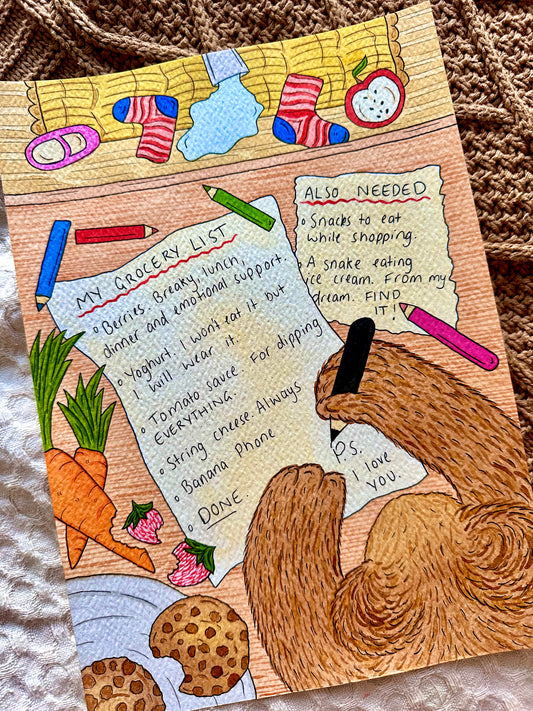 MY GROCERY LIST
Berries. Breaky, lunch,
dinner and emotional support.
Yoghurt. I won't eat it but
I will wear it.
Tomato sauce. For dipping
EVERYTHING.
String cheese. Always
Banana Phone
DONE.
P.S.
I love
you.
ALSO NEEDED
Snacks to eat
while shopping.
A snake eating
ice cream. From my
dream. FIND
IT!